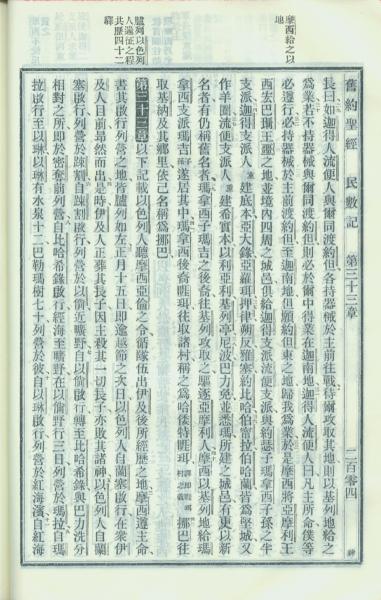 舊約聖經 民數記 第三十三章 二百零四
摩西給之以地
臚列以色列人遄征之程共歷四十二驛
長曰如迦得人流便人與爾同渡約但各持器械於主前往戰待爾攻取其地則以基列地給之
爲業若不持器械與爾同渡約但則必於爾中得業在迦南地迦得人流便人曰凡主所命僕等
必遵行必持器械於主前渡約但至迦南地但願約但東之地歸我爲業於是摩西將亞摩利王
西宏巴珊王噩之地並境內四周之城邑俱給迦得支派流便支派與約瑟子瑪拿西子孫之半
支派迦得支派人重建底本亞大錄亞羅珥押律朔反雅謝約比哈伯甯拉伯哈蘭皆爲堅城又
作羊圈流便支派人重建希實本以利亞利基列亭尼波巴力免並悉瑪所建之城邑有更以新
名者有仍稱舊名者瑪拿西子瑪吉之後裔往基列攻取之驅逐亞摩利人摩西以基列地給瑪
拿西支派瑪吉子孫遂居其中瑪拿西後裔睚珥往取諸村稱之爲哈倭特睚珥 挪巴往
取基納及其鄉里依己名稱爲挪巴
第三十三章 以下記載以色列人聽摩西亞倫之令循隊伍出伊及後所經歷之地摩西遵主命
書其啟行列營之地皆臚列如左正月十五日即逾越節之次日以色列人自蘭塞啟行在衆伊
及人目前昂然而出是時伊及人正葬其長子因主殺其一切長子亦敗其諸神以色列人自蘭
塞啟行列營於疎割自疎割啟行列營於以倘近曠野自以倘啟行轉至比哈希錄與巴力洗分
相對之所即於密奪前列營自比哈希錄啟行經海至曠野在以倘野行三日列營於瑪拉自瑪
拉啟行至以琳以琳有水泉十二巴勒瑪樹七十列營於彼自以琳啟行列營於紅海濱自紅海